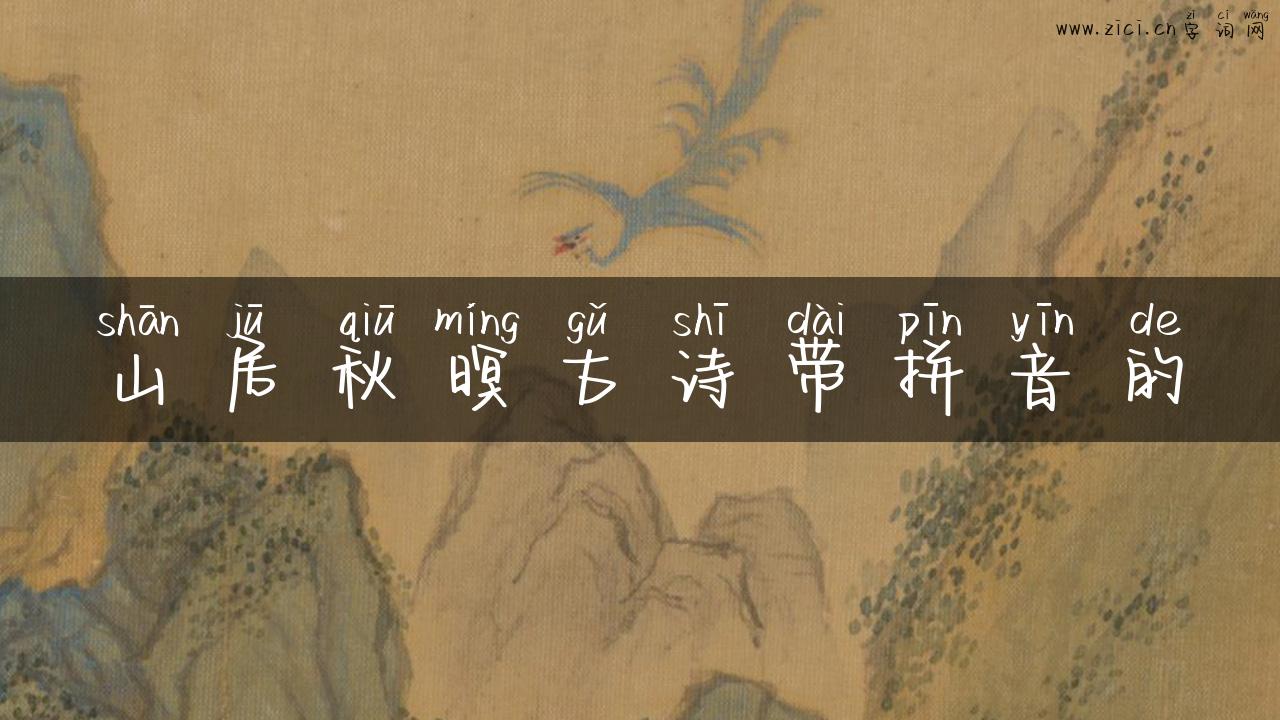 zì cí wǎng
www.zici.cn字词网
shān jū qiū míng gǔ shī dài pīn yīn de
山居秋暝古诗带拼音的